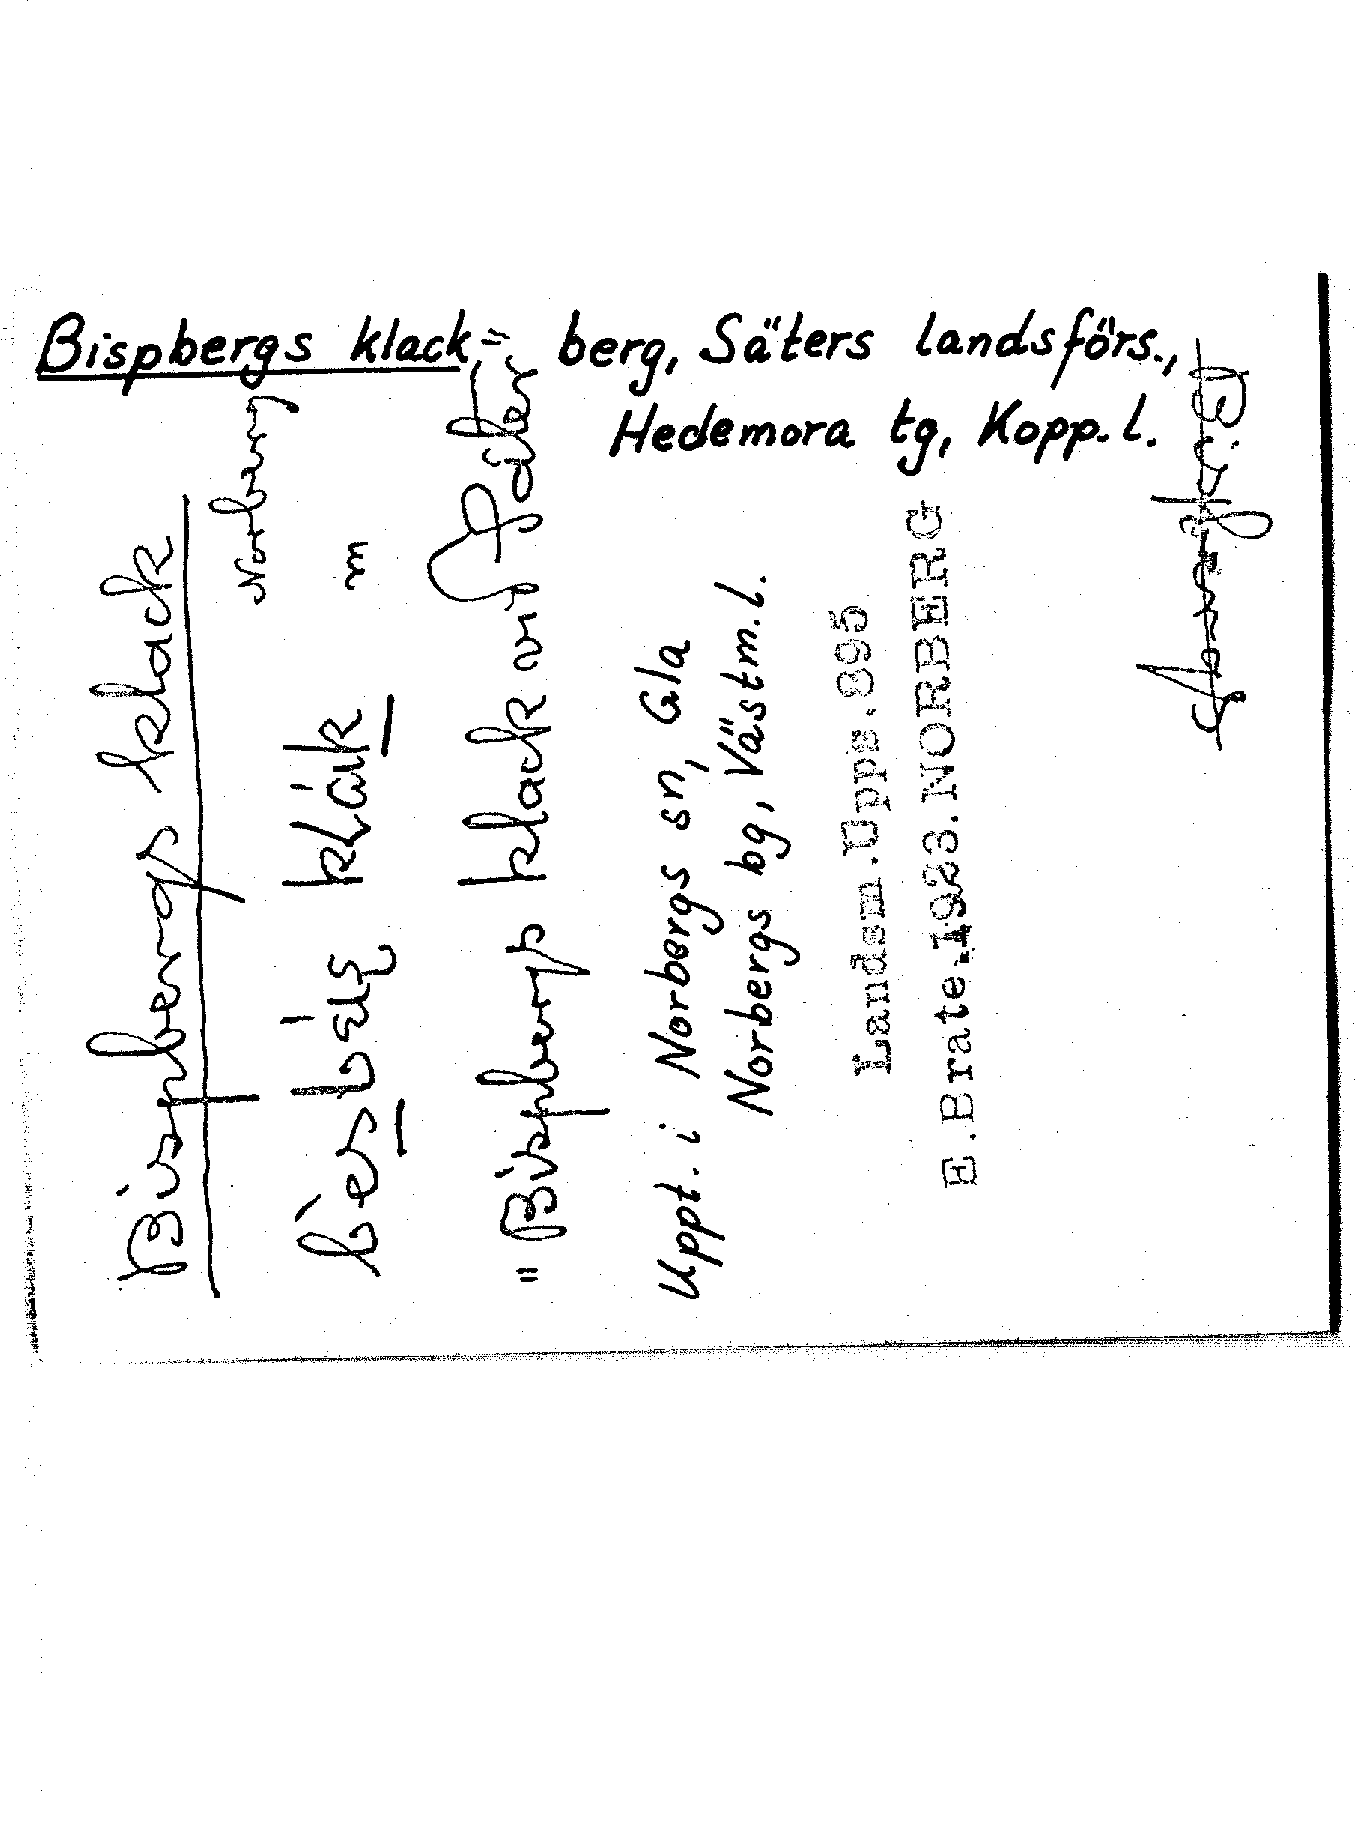 Bispbergs klack = berg, Säters landsförs.,
Hedemora tg, Kopp. l.
Bispbergs klack
Norberg
m
"Bispbergs klack vid Säter
Uppt. i Norbergs sn, Gla
Norbergs bg, Västm. l.
Landsm.Upps.895
E.Brate.1923.NORBERG